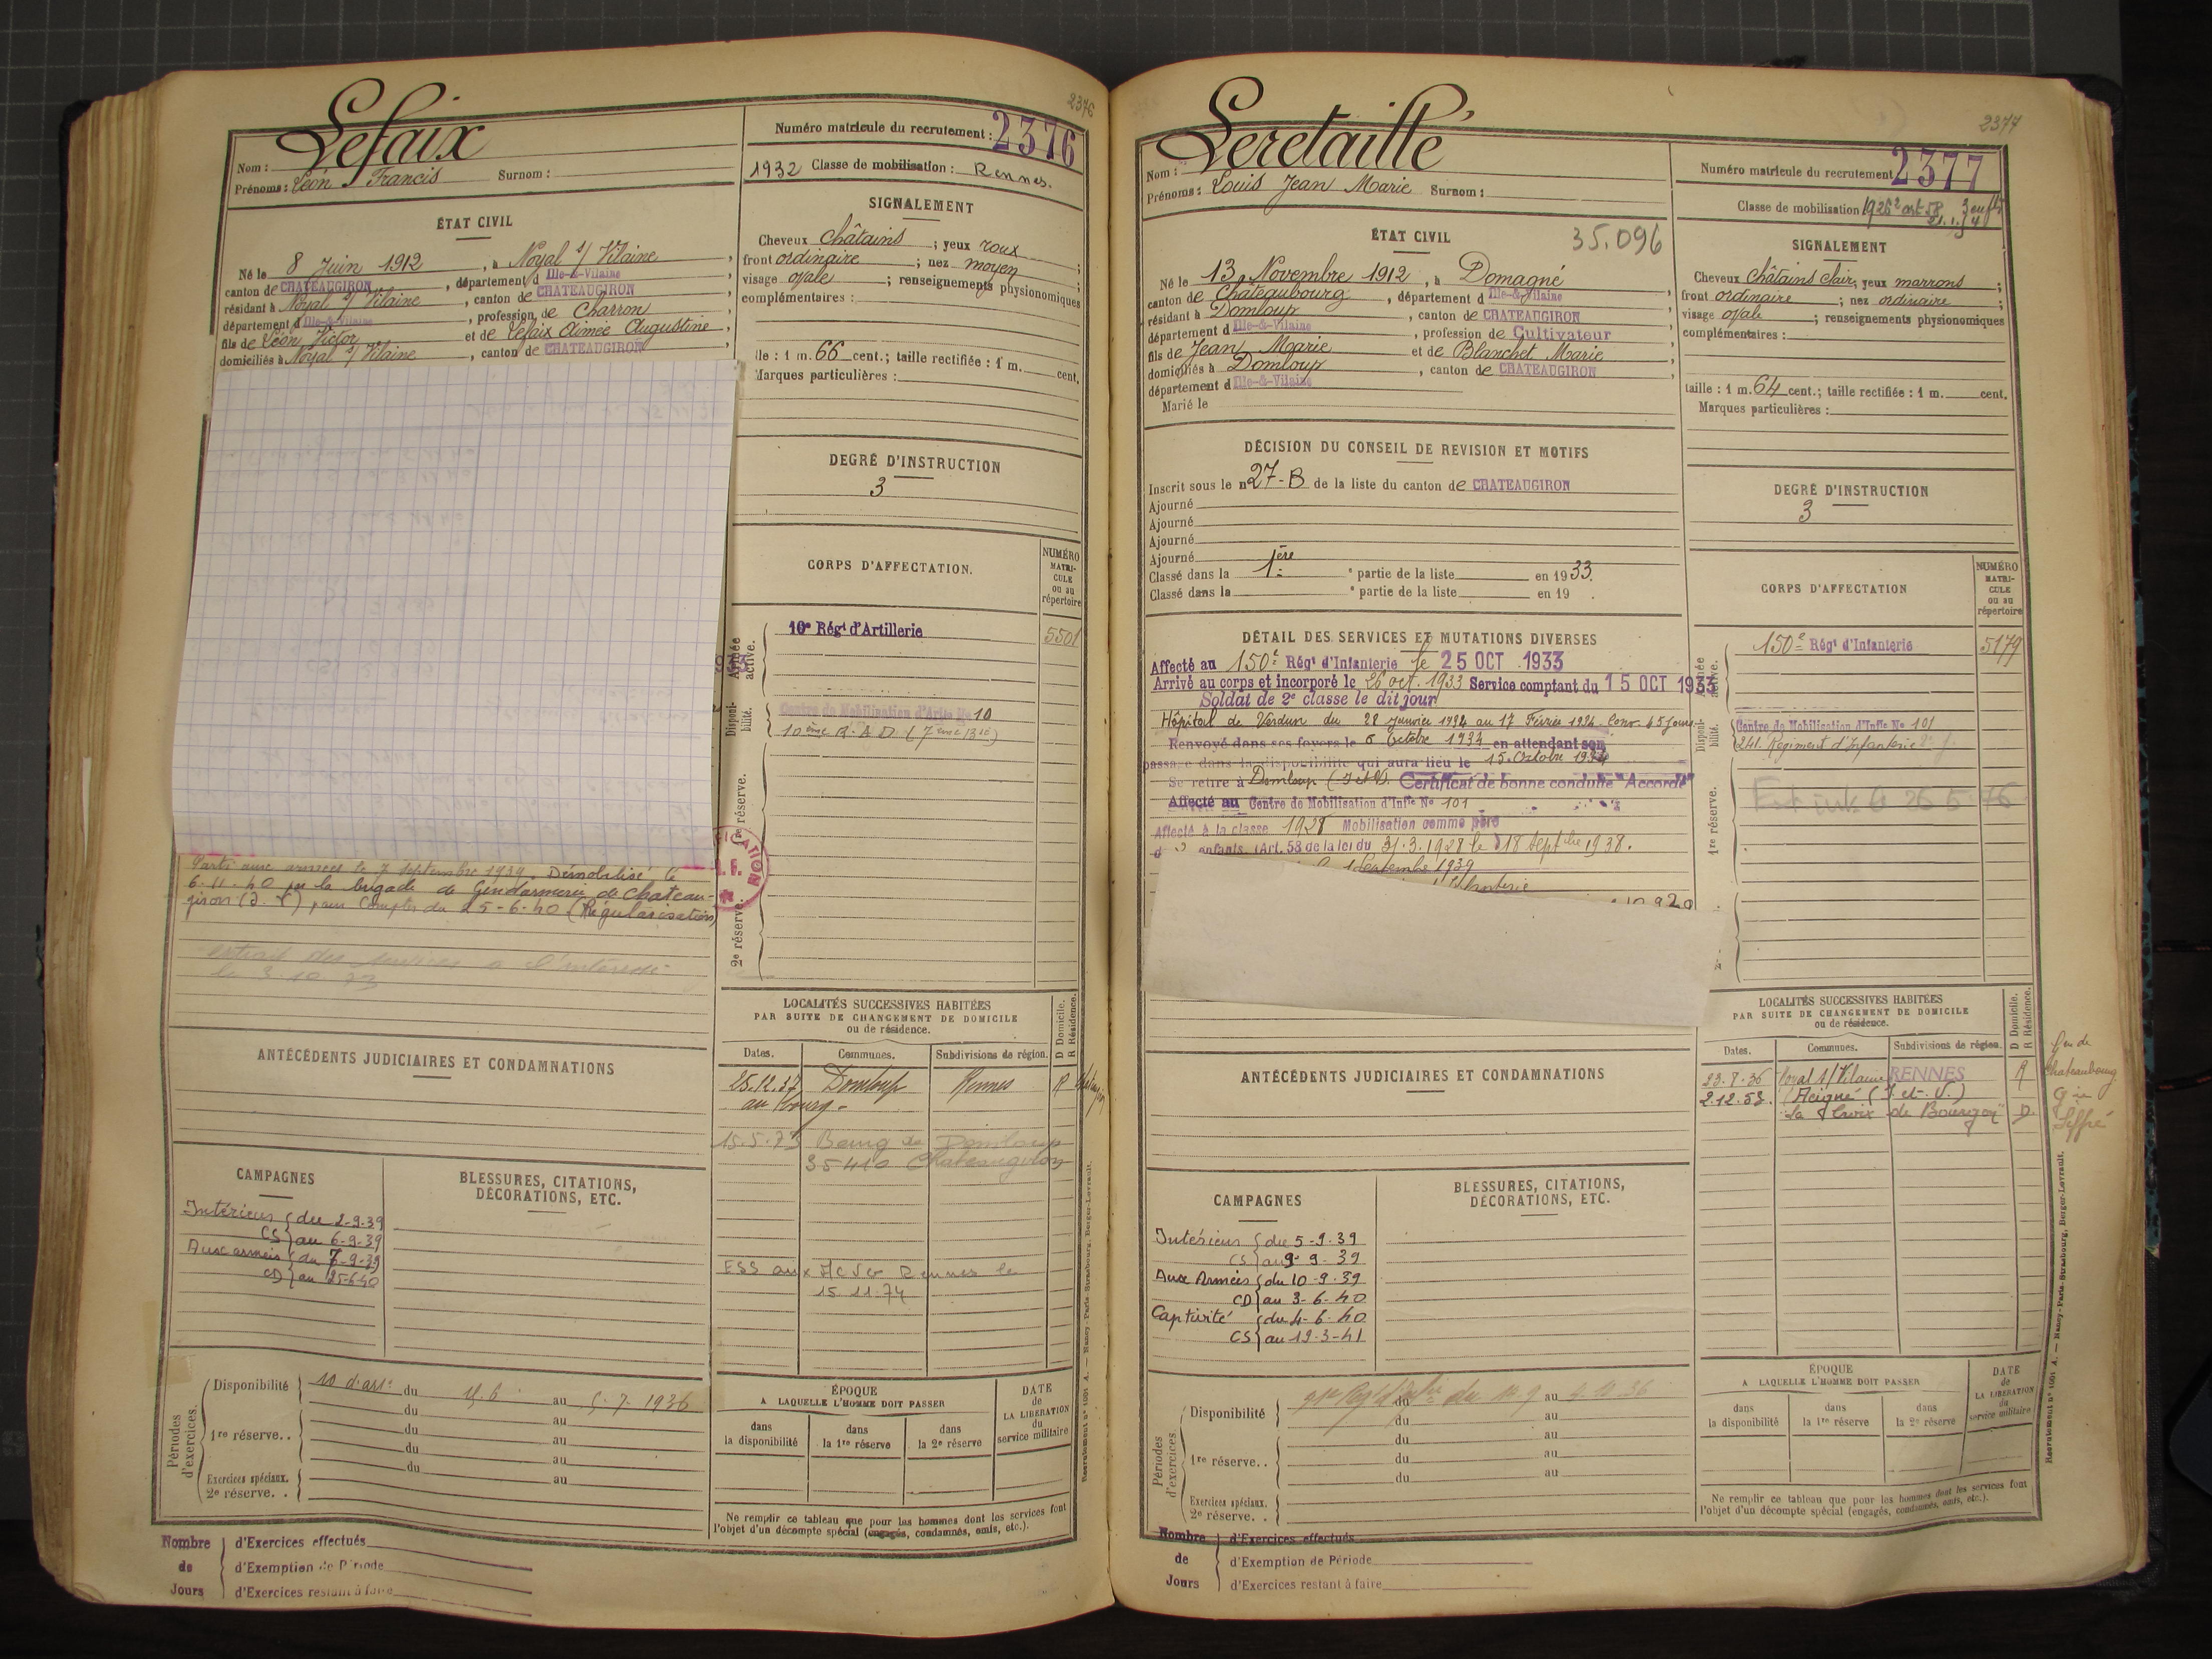 2376
Lefaix
Nom :
Prénoms : Léon Francis Surnom :
Numéro matricule du recrutement : 2376
1932 Classe de mobilisation : Rennes.
ÉTAT CIVIL
Né le 8 Juin 1912, à Noyal s/ Vilaine,
canton de CHATEAUGIRON, département d Ille-&-Vilaine
résidant à Noyal s/ Vilaine, canton de CHATEAUGIRON
département d Ille-&-Vilaine, profession de Charron
fils de Léon Victor et de Lefaix Aimée Augustine,
domiciliés à Noyal s/ Vilaine, canton de CHATEAUGIRON
SIGNALEMENT
Cheveux châtains ; yeux roux ;
front ordinaire ; nez moyen ;
visage ovale ; renseignements physionomiques
complémentaires :
lle : 1 m. 66 cent.; taille rectifiée : 1 m. cent.
Marques particulières :
DEGRÉ D'INSTRUCTION
3
CORPS D'AFFECTATION.
NUMÉRO MATRI-CULE ou au répertoire
Armée active.
10e Régt d'Artillerie 5501
Disponi-bilité.
Centre de Mobilisation d'Artie No 10
10ème R.A.D. (7ème Bie)
1re réserve.
2e réserve.
Parti aux armées le 7 septembre 1939. Démobilisé le
6-11-40 par la brigade de Gendarmerie de Chateau-
giron (I.V) pour compter du 25-6-40 (Régularisation)
extrait des services a l'intéressé
le 3.10.73
LOCALITÉS SUCCESSIVES HABITÉES
PAR SUITE DE CHANGEMENT DE DOMICILE
ou de résidence.
D Domicile. R Résidence.
Dates. Communes. Subdivisions de région.
25.12.37 Domloup Rennes R
au bourg.
15.5.73 Bourg de Domloup
35410 Chateaugiron
ESS aux Rennes le
15.11.74
ANTÉCÉDENTS JUDICIAIRES ET CONDAMNATIONS
CAMPAGNES
BLESSURES, CITATIONS,
DÉCORATIONS, ETC.
Intérieur du 2-9-39
CS au 6-9-39
Aux armées du 7-9-39
CD au 25-6-40
Périodes d'exercices.
Disponibilité 10 d'arti du 15.6 au 5.7.1936
du au
1re réserve. . du au
du au
du au
Exercices spéciaux.
2e réserve. . au
ÉPOQUE
A LAQUELLE L'HOMME DOIT PASSER
dans la disponibilité
dans la 1re réserve
dans la 2e réserve
DATE de LA LIBÉRATION du service militaire
Ne remplir ce tableau que pour les hommes dont les services font
l'objet d'un décompte spécial (engagés, condamnés, omis, etc.).
Recrutement n° 1001 A. — Nancy-Paris-Strasbourg, Berger-Levrault.
Nombre de Jours
d'Exercices effectués
d'Exemption de Période
d'Exercices restant à faire
2377
Leretaillé
Nom :
Prénoms : Louis Jean Marie Surnom :
Numéro matricule du recrutement 2377
Classe de mobilisation 1926
ÉTAT CIVIL
35.096
Né le 13 Novembre 1912, à Domagné
canton de Châteaubourg, département d Ille-&-Vilaine
résidant à Domloup, canton de CHATEAUGIRON
département d Ille-&-Vilaine, profession de Cultivateur
fils de Jean Marie et de Blanchet Marie
domiciliés à Domloup, canton de CHATEAUGIRON
département d Ille-&-Vilaine
Marié le
SIGNALEMENT
Cheveux châtains clair; yeux marrons ;
front ordinaire ; nez ordinaire ;
visage ovale ; renseignements physionomiques
complémentaires :
taille : 1 m. 64 cent.; taille rectifiée : 1 m. cent.
Marques particulières :
DÉCISION DU CONSEIL DE REVISION ET MOTIFS
Inscrit sous le n 27-B de la liste du canton de CHATEAUGIRON
Ajourné
Ajourné
Ajourné
Ajourné
Classé dans la 1ère partie de la liste en 1933.
Classé dans la e partie de la liste en 19 .
DEGRÉ D'INSTRUCTION
3
CORPS D'AFFECTATION
NUMÉRO MATRI-CULE ou au répertoire
150e Régt d'Infanterie 5179
Centre de Mobilisation d'Infie No 101
241. Régiment d'Infanterie
Disponi-bilité.
1re réserve.
DÉTAIL DES SERVICES ET MUTATIONS DIVERSES
Affecté au 150e Régt d'Infanterie le 25 OCT 1933
Arrivé au corps et incorporé le 26 oct. 1933 Service comptant du 15 OCT 1933
Soldat de 2e classe le dit jour
Hôpital de Verdun du 28 Janvier 1934 au 17 Février 1934. Conv. 45 jours
Renvoyé dans ses foyers le 6 Octobre 1934 en attendant son
passage dans la disponibilité qui aura lieu le 15 Octobre 1934
Se retire à Domloup (I et V). Certificat de bonne conduite "Accordé"
Affecté au Centre de Mobilisation d'Infie No 101
Affecté à la classe 1928 Mobilisation comme père
d enfants (Art. 58 de la loi du 31.3.1928 le 18 Septbre 1938.
Septembre 1939
LOCALITÉS SUCCESSIVES HABITÉES
PAR SUITE DE CHANGEMENT DE DOMICILE
ou de résidence.
D Domicile. R Résidence.
Dates. Communes. Subdivisions de région.
23.7.36 Noyal s/ Vilaine RENNES R
2.12.53. Acigné (I. et. V.)
La Croix de Bourgon D.
Chateaubourg
Liffré
ANTÉCÉDENTS JUDICIAIRES ET CONDAMNATIONS
CAMPAGNES
BLESSURES, CITATIONS,
DÉCORATIONS, ETC.
Intérieur du 5-9-39
CS au 9-9-39
Aux Armées du 10-9-39
CD au 3-6-40
Captivité du 4-6-40
CS au 12-3-41
Périodes d'exercices.
Disponibilité du au
du au
du au
1re réserve. . du au
du au
Exercices spéciaux.
2e réserve. .
ÉPOQUE
A LAQUELLE L'HOMME DOIT PASSER
dans la disponibilité
dans la 1re réserve
dans la 2e réserve
DATE de LA LIBÉRATION du service militaire
Ne remplir ce tableau que pour les hommes dont les services font
l'objet d'un décompte spécial (engagés, condamnés, omis, etc.).
Recrutement n° 1001 A. — Nancy-Paris-Strasbourg, Berger-Levrault.
Nombre de Jours
d'Exercices effectués
d'Exemption de Période
d'Exercices restant à faire